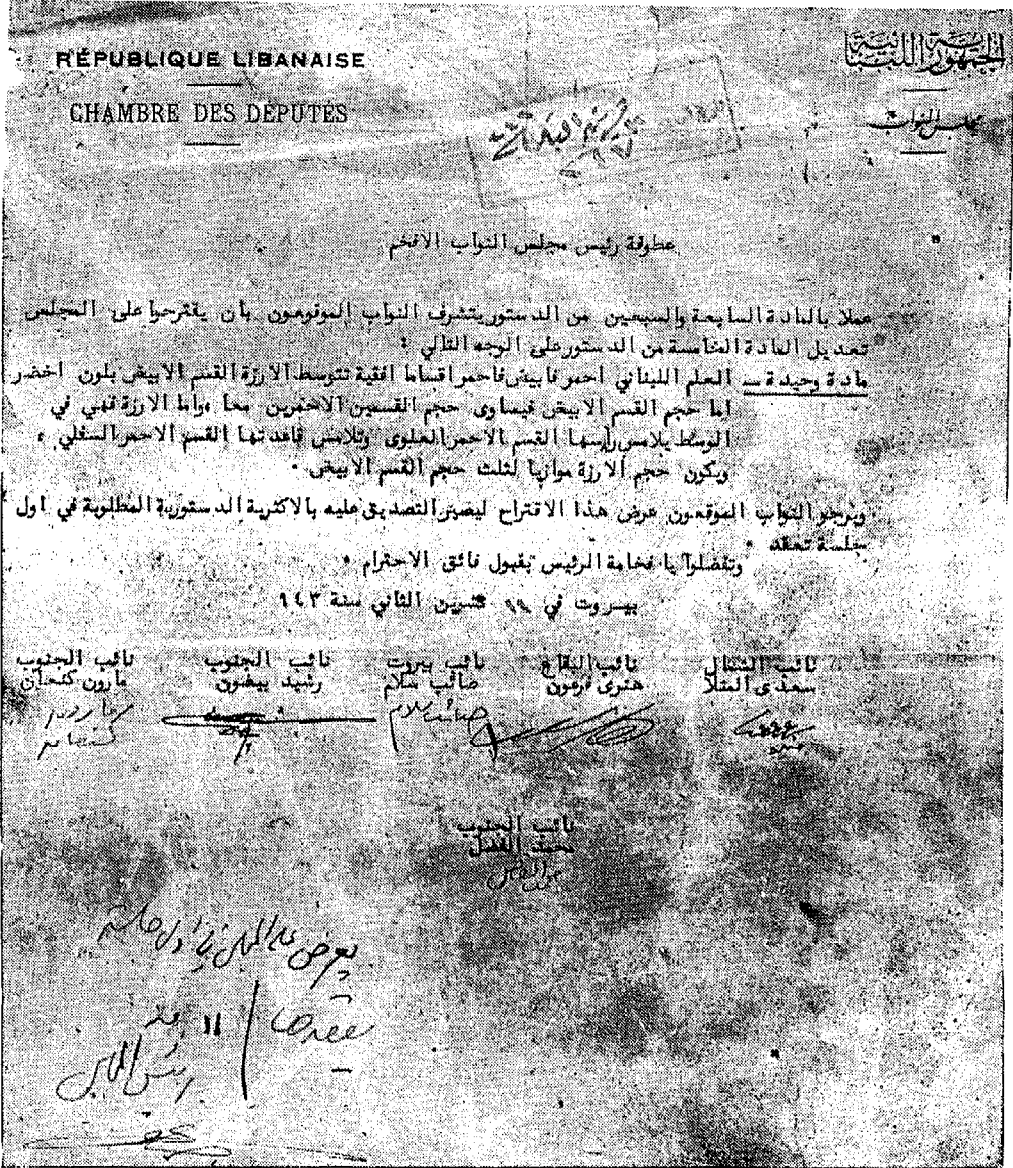 RÉPUBLIQUE LIBANAISE
الجمهورية اللبنانية
CHAMBRE DES DÉPUTÉS
مجلس النواب
عطوفة رئيس مجلس النواب الافخم
عملا بالمادة السابعة والسبعين من الدستور يتشرف النواب الموقعون بان يقترحوا على المجلس
تعديل المادة الخامسة من الدستور على الوجه التالي :
مادة وحيدة ــ العلم اللبناني احمر فابيض فاحمر اقساما افقية تتوسط الارزة القسم الابيض بلون اخضر
اما حجم القسم الابيض فيساوى حجم القسمين الاحمرين معا ، واما الارزة فهي في
الوسط يلامس رأسها القسم الاحمر العلوى وتلامس قاعدتها القسم الاحمر السفلي ،
ويكون حجم الارزة موازيا لثلث حجم القسم الابيض .
ويرجو النواب الموقعون عرض هذا الاقتراح ليصير التصديق عليه بالاكثرية الدستورية المطلوبة في اول
جلسة تعقد .
وتفضلوا يا فخامة الرئيس بقبول فائق الاحترام .
بيروت في ١١ تشرين الثاني سنة ٩٤٣
نائب الشمال نائب البقاع نائب بيروت نائب الجنوب نائب الجنوب
سعدى المنلا هنرى فرعون صائب سلام رشيد بيضون مارون كنعان
صائب سلام مارون
كنعان
نائب الجنوب
محمد الفضل
يعرض على المجلس في اول جلسة
يعقدها
رئيس المجلس